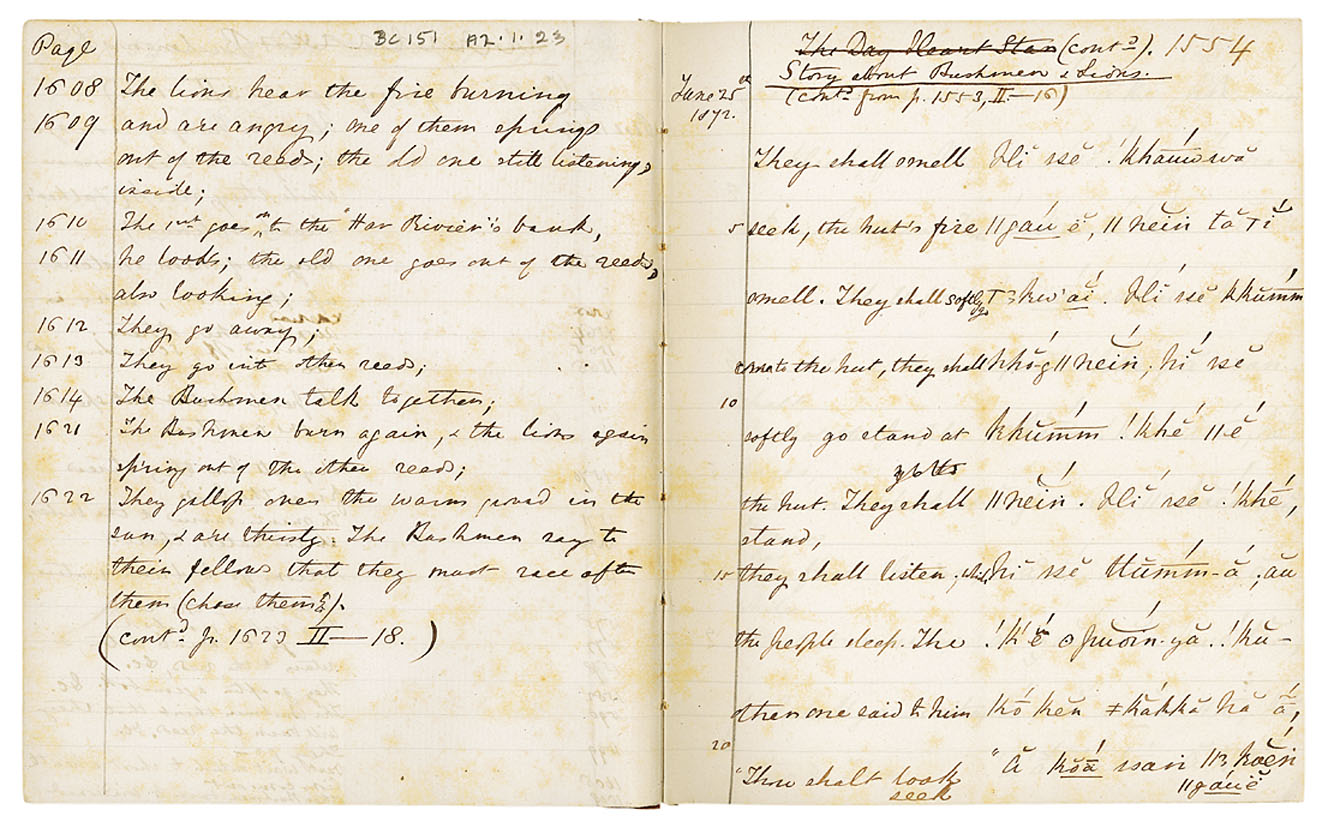 BC 151 A2.1.23
Page
1608 The lions hear the fire burning
1609 and are angry; one of them springs
out of the reeds; the old one still listening,
inside;
1610 The 1st goes on to the "Har Rivier"'s bank,
1611 he looks; the old one goes out of the reeds,
also looking;
1612 They go away;
1613 They go into other reeds;
1614 The Bushmen talk together;
1621 The Bushmen burn again, & the lions again
spring out of the other reeds;
1622 They gallop over the warm ground in the
sun, & are thirsty. The Bushmen say to
their fellows that they must race after
them (chase them?).
(contd. p. 1623 II—18.)
The Day Heart Star (contd). 1554
Story about Bushmen & Lions.
(contd from p. 1553, II.—16)
June 25th
1872.
They shall smell Hĭ ssĕ !khā́uwā
5 seek, the hut's fire ||gáu ĕ, ||neiń tă ï
smell. They shall softly go kwʼaí. Hĭ ssĕ kkŭḿm
come to the hut, they shall hhó-g ||neiń; hĭ ssĕ
10
softly go stand at kkŭḿm !khé ||ĕ
the hut. They shall ||neiń. Hĭ ssĕ !khé,
stand,
15 they shall listen; while hĭ ssĕ ttŭḿm-ā́; au
the people sleep. The !kʼé ʘpuoiń-yă. !kŭ-
other one said to him kó kĕn ǂkákkă hă ā́,
20
"Thou shalt look "Ă kŏā́ ssan ||kŏĕń
seek ||gáuĕ